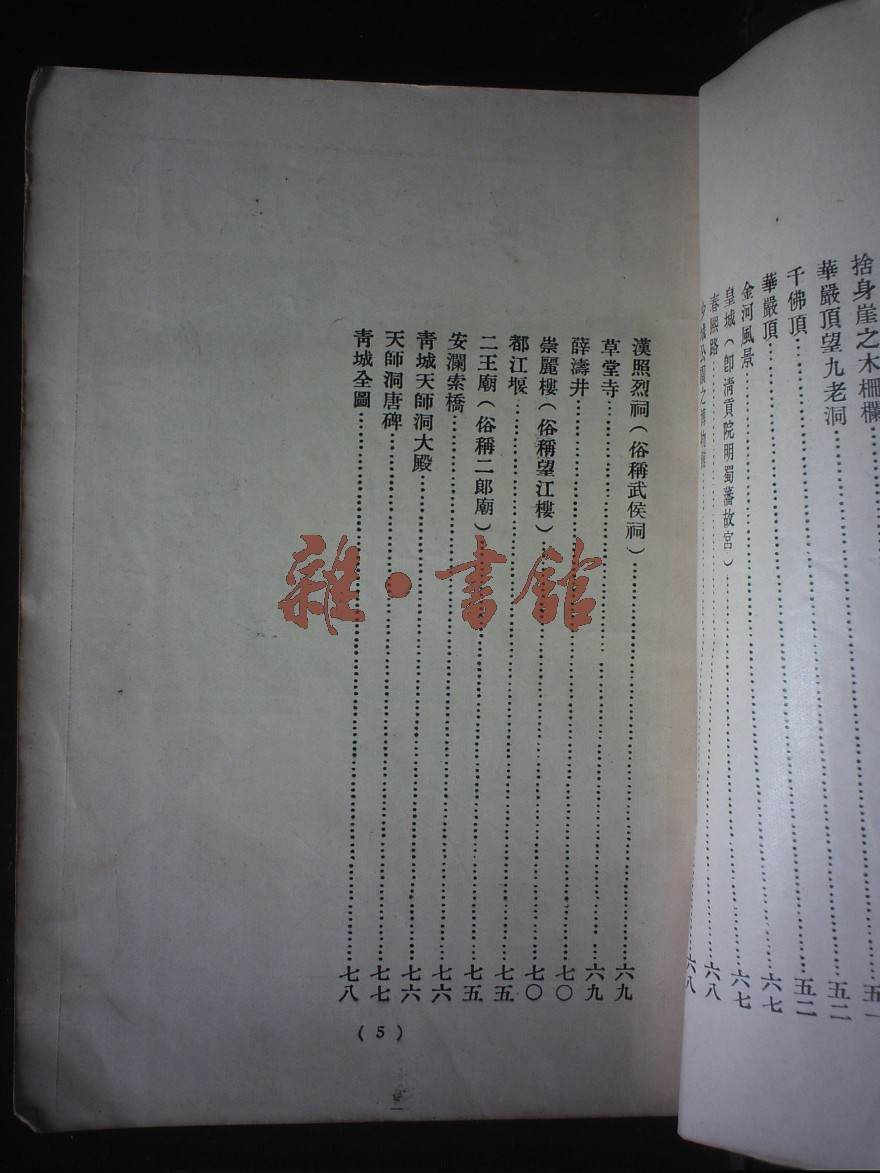 捨身崖之木柵欄……五一
華嚴頂望九老洞……五二
千佛頂……五二
華嚴頂……六七
金河風景……六七
皇城(卽淸貢院明蜀藩故宮)……六七
春熙路……六八
少城公園之博物館……六八
漢照烈祠(俗稱武侯祠)……六九
草堂寺……六九
薛濤井……七〇
崇麗樓(俗稱望江樓)……七〇
都江堰……七五
二王廟(俗稱二郞廟)……七五
安瀾索橋……七六
靑城天師洞大殿……七六
天師洞唐碑……七七
靑城全圖……七八
(5)
雜·書館